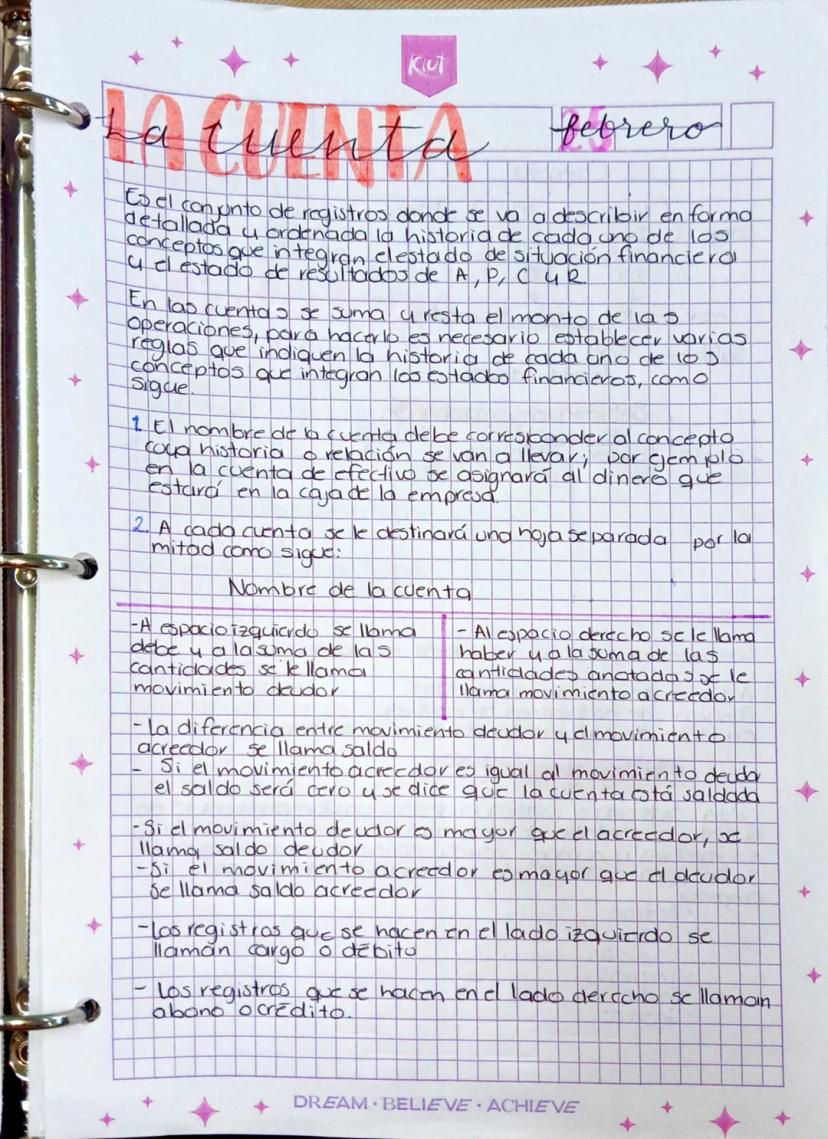 KIUT
LA CUENTA
La cuenta
25
febrero
Es el conjunto de registros donde se va a describir en forma
detallada y ordenada la historia de cada uno de los
conceptos que integran el estado de situación financiera
y el estado de resultados de A, P, C y R
En las cuentas se suma y resta el monto de las
operaciones, para hacerlo es necesario establecer varias
reglas que indiquen la historia de cada uno de los
conceptos que integran los estados financieros, como
sigue.
1. El nombre de la cuenta debe corresponder al concepto
cuya historia o relación se van a llevar; por ejemplo
en la cuenta de efectivo se asignará al dinero que
estará en la caja de la empresa.
2. A cada cuenta se le destinará una hoja separada por la
mitad como sigue:
Nombre de la cuenta
-A espacio izquierdo se llama
debe y a la suma de las
cantidades se le llama
movimiento deudor
- Al espacio derecho se le llama
haber y a la suma de las
cantidades anotadas se le
llama movimiento acreedor
- la diferencia entre movimiento deudor y el movimiento
acreedor se llama saldo
- Si el movimiento acreedor es igual al movimiento deudor
el saldo será cero y se dice que la cuenta está saldada
-Si el movimiento deudor es mayor que el acreedor, se
llama saldo deudor
-Si el movimiento acreedor es mayor que el deudor
se llama saldo acreedor
-Los registros que se hacen en el lado izquierdo se
llaman cargo o débito
- Los registros que se hacen en el lado derecho se llaman
abono o crédito.
DREAM · BELIEVE · ACHIEVE